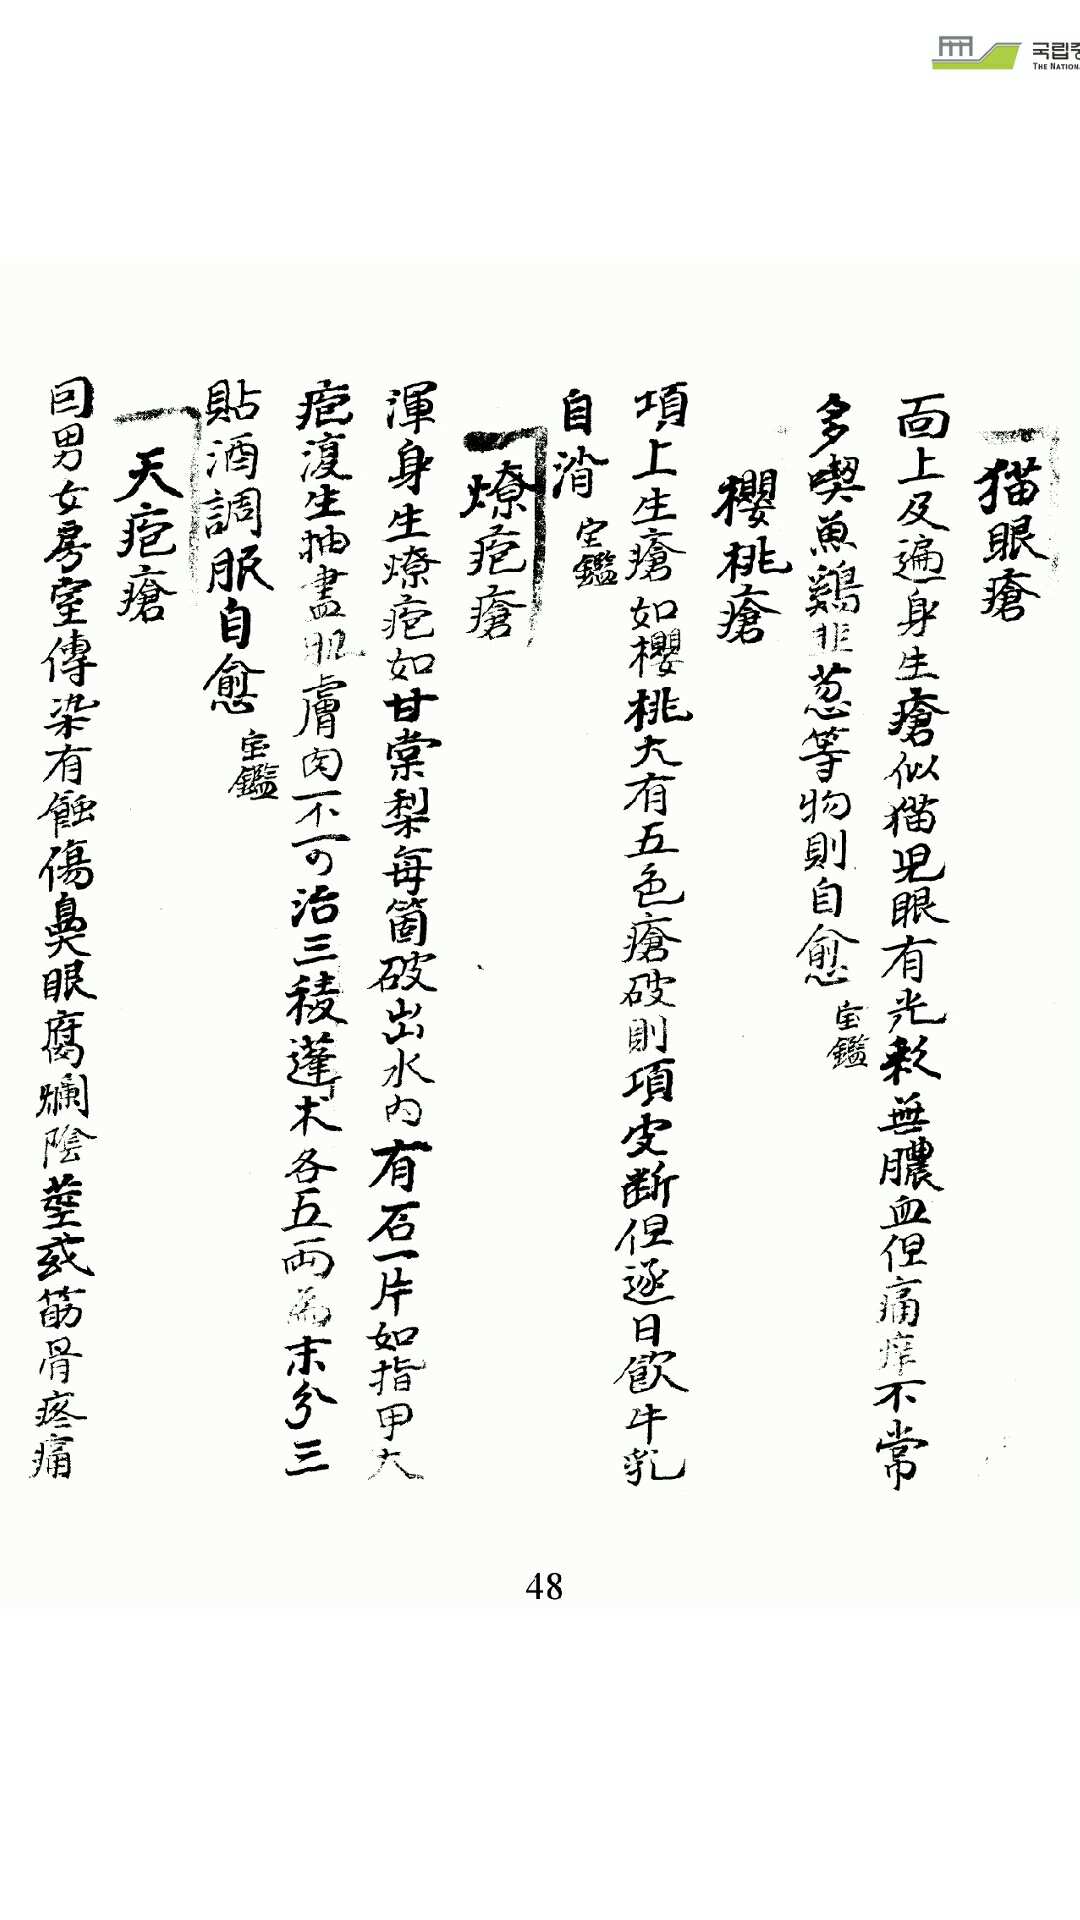 국립중
THE NATION
猫眼瘡
面上及遍身生瘡似猫兒眼有光彩無膿血但痛痒不常
多喫魚鷄韭葱等物則自愈 宝鑑
櫻桃瘡
項上生瘡如櫻桃大有五色瘡破則項皮断但逐日飮牛乳
自消 宝鑑
燎疱瘡
渾身生燎疱如甘棠梨每箇破出水內有石一片如指甲大
疱復生抽盡肌膚肉不可治三稜蓬朮各五兩為末分三
貼酒調服自愈 宝鑑
天疱瘡
回男女房室傳染有蝕傷鼻眼腐爛陰莖或筋骨疼痛
48